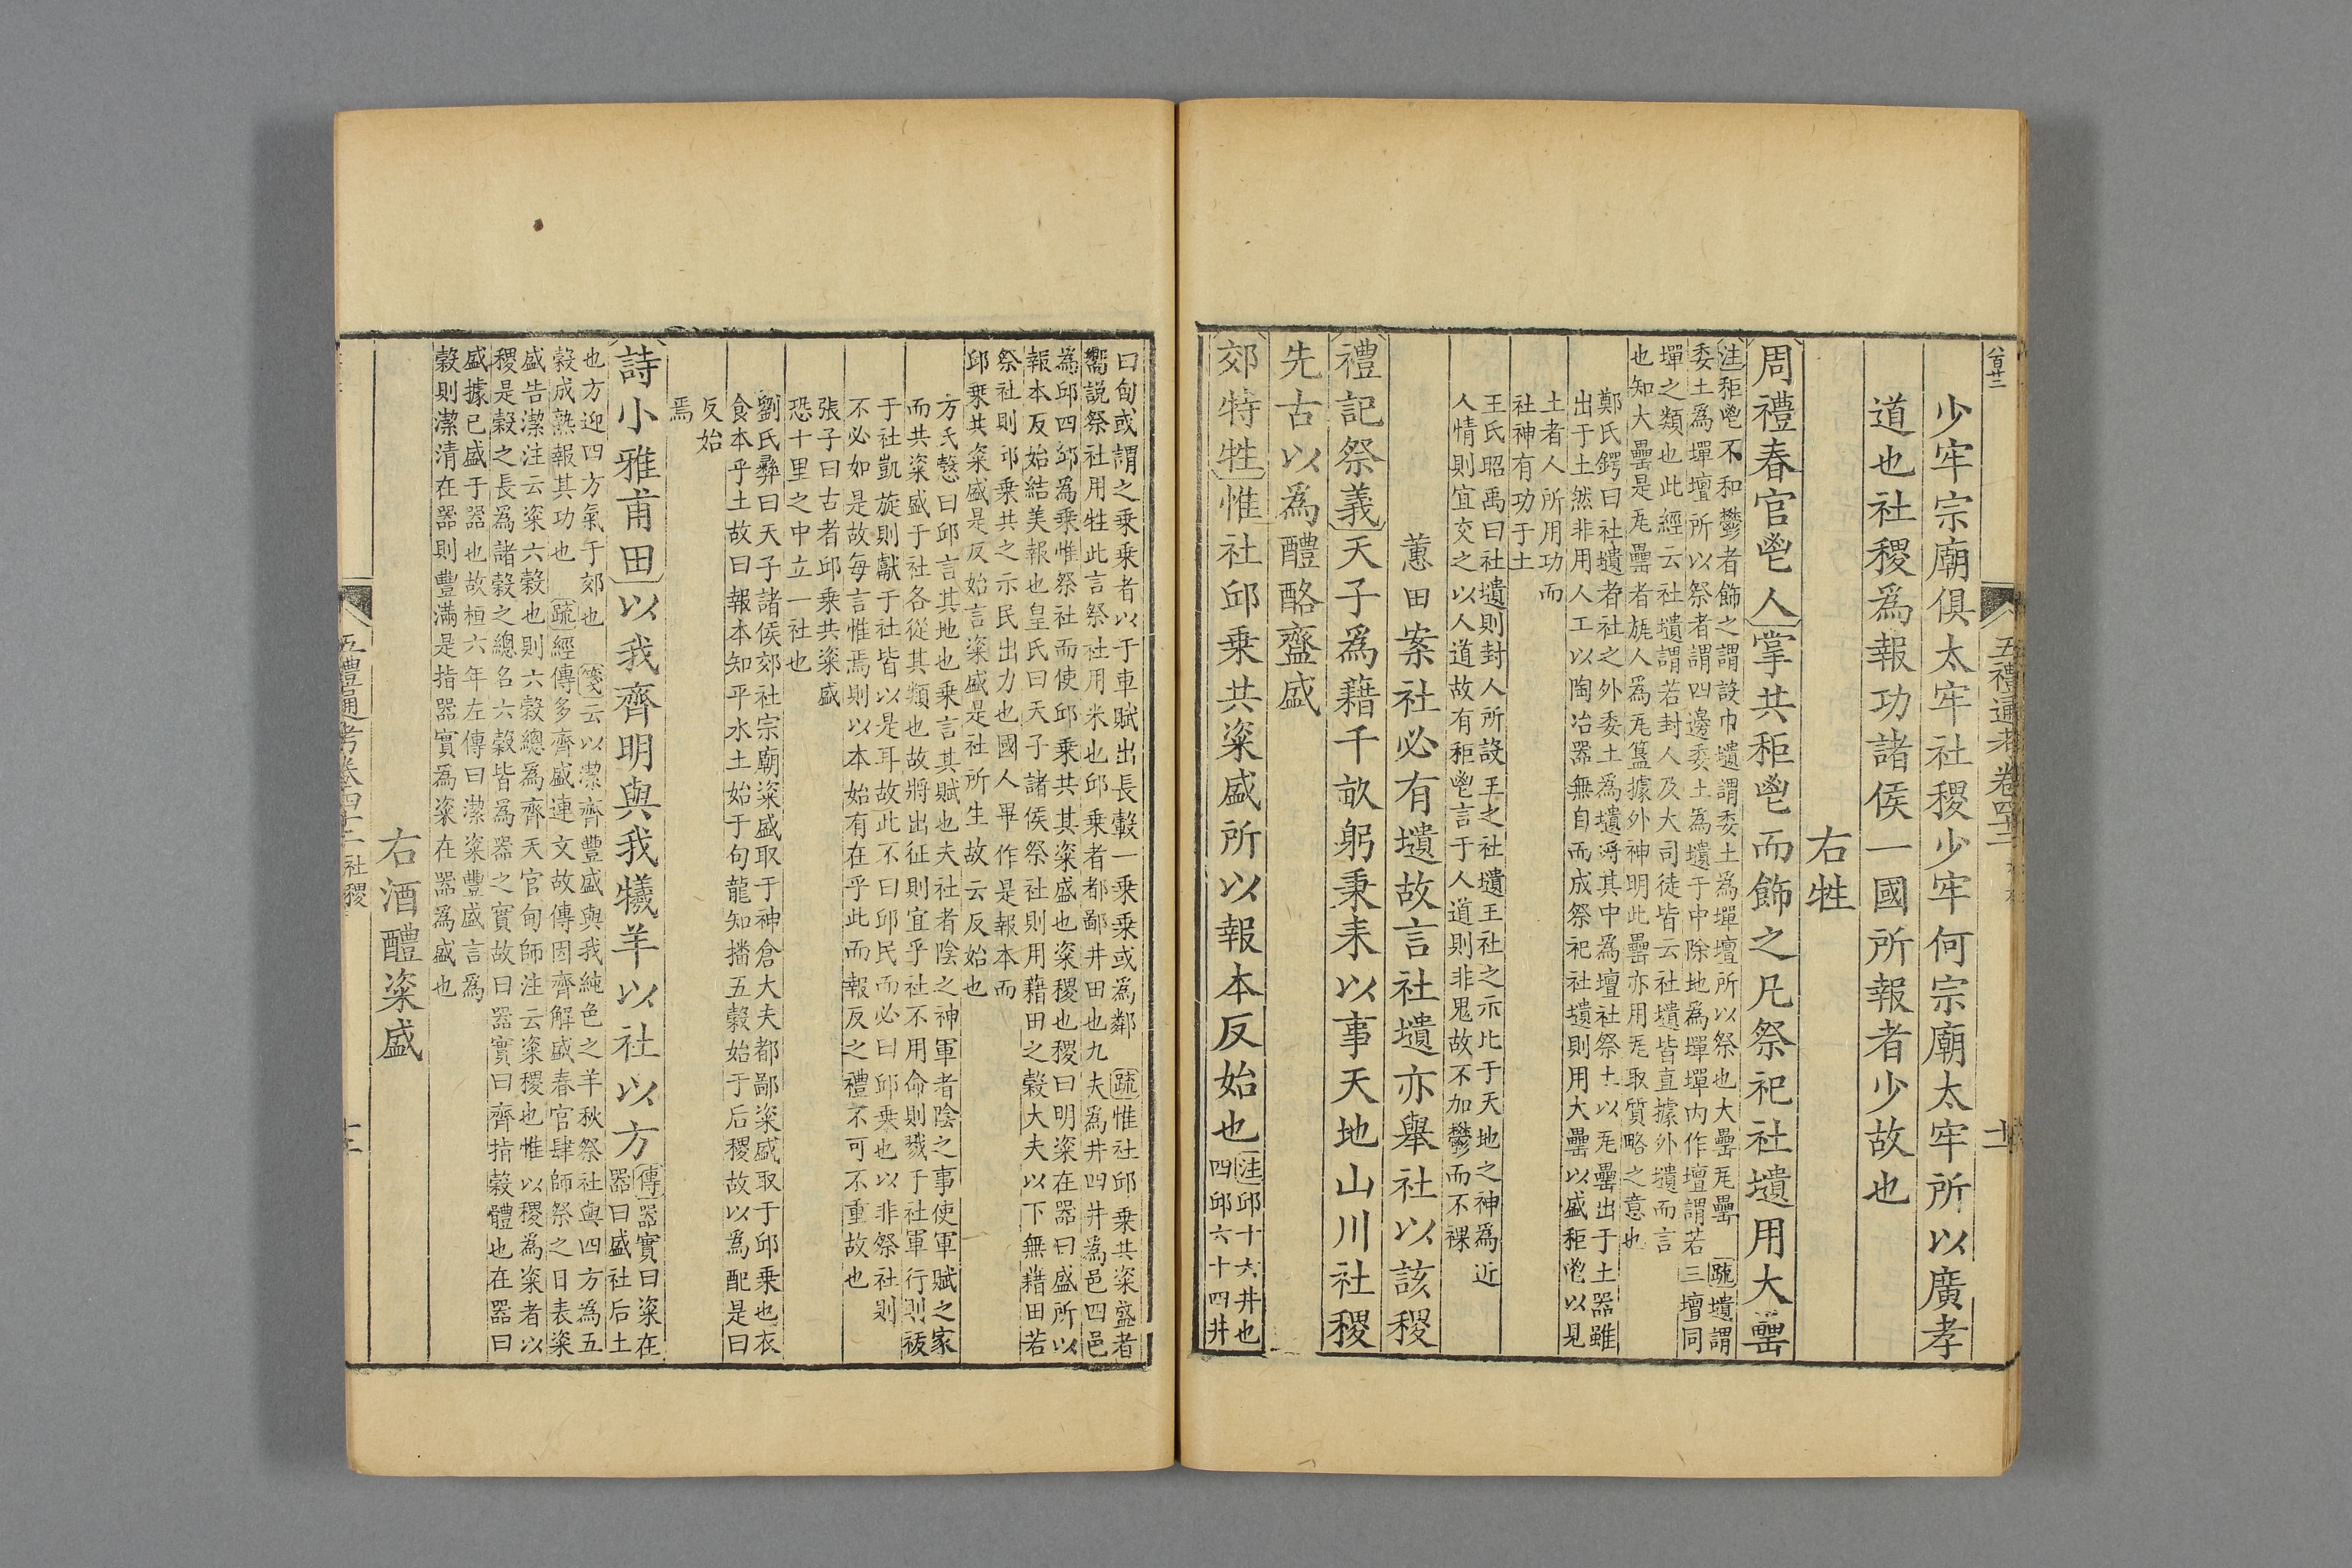 少牢宗廟俱太牢社稷少牢何宗廟太牢所以廣孝
道也社稷爲報功諸侯一國所報者少故也
右牲
周禮春官鬯人掌共秬鬯而飾之凡祭祀社壝用大罍
注秬鬯不和鬱者飾之謂設巾壝謂委土爲墠壇所以祭也大罍瓦罍 疏壝謂
委土爲墠壇所以祭者謂四邊委土爲壝于中除地爲墠墠內作壇謂若三壇同
墠之類也此經云社壝謂若封人及大司徒皆云社壝皆直據外壝而言
也知大罍是瓦罍者旊人爲瓦簋據外神明此罍亦用瓦取質略之意也
鄭氏鍔曰社壝者社之外委土爲壝埓其中爲壇社祭土以瓦罍出于土器雖
出于土然非用人工以陶冶器無自而成祭祀社壝則用大罍以盛秬鬯以見
土者人所用功而
社神有功于土
王氏昭禹曰社壝則封人所設王之社壝王社之示比于天地之神爲近
人情則宜交之以人道故有秬鬯言于人道則非鬼故不加鬱而不祼
蕙田案社必有壝故言社壝亦舉社以該稷
禮記祭義天子爲藉千畝躬秉耒以事天地山川社稷
先古以爲醴酪齍盛
郊特牲惟社邱乗共粢盛所以報本反始也
注邱十六井也
四邱六十四井
曰甸或謂之乗乗者以于車賦出長轂一乗乗或爲鄰 疏惟社邱乗共粢盛者
嚮說祭社用牲此言祭社用米也邱乗者都鄙井田也九夫爲井四井爲邑四邑
爲邱四邱爲乗惟祭社而使邱乗共其粢盛也粢稷也稷曰明粢在器曰盛所以
報本反始結美報也皇氏曰天子諸侯祭社則用藉田之穀大夫以下無藉田若
祭社則邱乗共之示民出力也國人畢作是報本而
邱乗共粢盛是反始言粢盛是社所生故云反始也
方氏慤曰邱言其地也乗言其賦也夫社者陰之神軍者陰之事使軍賦之家
而共粢盛于社各從其類也故將出征則宜乎社不用命則戮于社軍行則祓
于社凱旋則獻于社皆以是耳故此不曰邱民而必曰邱乗也以非祭社則
不必如是故每言惟焉則以本始有在乎此而報反之禮不可不重故也
張子曰古者邱乗共粢盛
恐十里之中立一社也
劉氏彝曰天子諸侯郊社宗廟粢盛取于神倉大夫都鄙粢盛取于邱乗也衣
食本乎土故曰報本知平水土始于句龍知播五穀始于后稷故以爲配是曰
反始
焉
詩小雅甫田以我齊明與我犧羊以社以方
傳器實曰粢在
器曰盛社后土
也方迎四方氣于郊也 箋云以潔齊豐盛與我純色之羊秋祭社與四方爲五
穀成熟報其功也 疏經傳多齊盛連文故傳因齊解盛春官肆師祭之日表粢
盛告潔注云粢六穀也則六穀總爲齊天官甸師注云粢稷也惟以稷爲粢者以
稷是穀之長爲諸穀之總名六穀皆爲器之實故曰器實曰齊指穀體也在器曰
盛據已盛于器也故桓六年左傳曰潔粢豐盛言爲
穀則潔清在器則豐滿是指器實爲粢在器爲盛也
右酒醴粢盛
五禮通考卷四十二 社稷